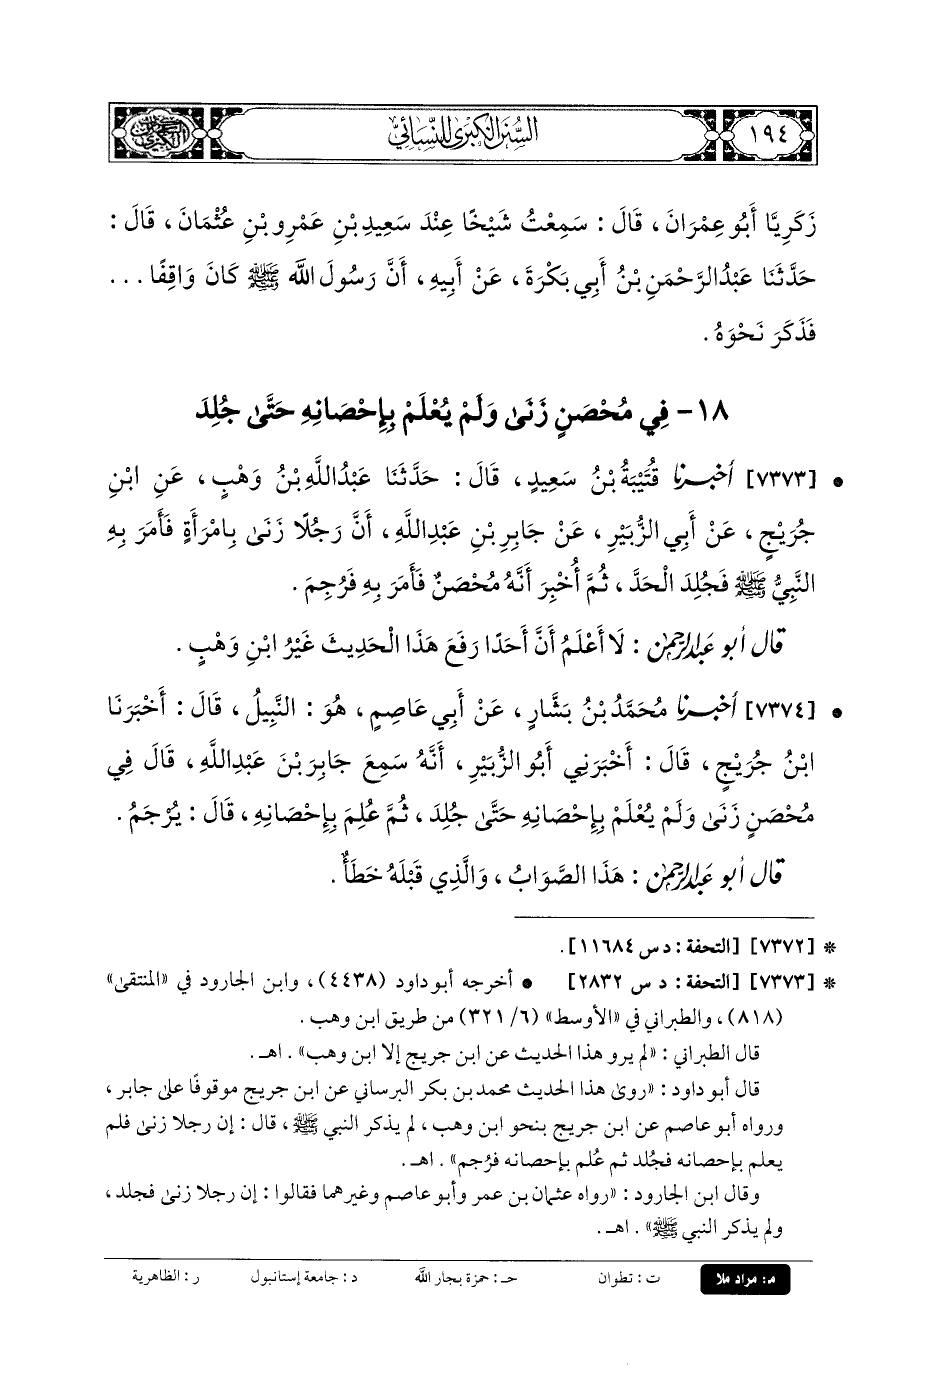 ١٩٤
السنن الكبرى للنسائي
السنن الكبرى
زَكَرِيَّا أَبُو عِمْرَانَ، قَالَ: سَمِعْتُ شَيْخًا عِنْدَ سَعِيدِ بْنِ عَمْرِو بْنِ عُثْمَانَ، قَالَ:
حَدَّثَنَا عَبْدُ الرَّحْمَنِ بْنُ أَبِي بَكْرَةَ، عَنْ أَبِيهِ، أَنَّ رَسُولَ اللَّهِ ﷺ كَانَ وَاقِفًا ...
فَذَكَرَ نَحْوَهُ.
١٨- فِي مُحْصَنٍ زَنَىٰ وَلَمْ يُعْلَمْ بِإِحْصَانِهِ حَتَّىٰ جُلِدَ
• [٧٣٧٣] أخبرنا قُتَيْبَةُ بْنُ سَعِيدٍ، قَالَ: حَدَّثَنَا عَبْدُ اللَّهِ بْنُ وَهْبٍ، عَنِ ابْنِ
جُرَيْجٍ، عَنْ أَبِي الزُّبَيْرِ، عَنْ جَابِرِ بْنِ عَبْدِ اللَّهِ، أَنَّ رَجُلًا زَنَىٰ بِامْرَأَةٍ فَأَمَرَ بِهِ
النَّبِيُّ ﷺ فَجُلِدَ الْحَدَّ، ثُمَّ أُخْبِرَ أَنَّهُ مُحْصَنٌ فَأَمَرَ بِهِ فَرُجِمَ.
قال أبو عبد الرحمن: لَا أَعْلَمُ أَنَّ أَحَدًا رَفَعَ هَذَا الْحَدِيثَ غَيْرُ ابْنِ وَهْبٍ.
• [٧٣٧٤] أخبرنا مُحَمَّدُ بْنُ بَشَّارٍ، عَنْ أَبِي عَاصِمٍ، هُوَ: النَّبِيلُ، قَالَ: أَخْبَرَنَا
ابْنُ جُرَيْجٍ، قَالَ: أَخْبَرَنِي أَبُو الزُّبَيْرِ، أَنَّهُ سَمِعَ جَابِرَ بْنَ عَبْدِ اللَّهِ، قَالَ فِي
مُحْصَنٍ زَنَىٰ وَلَمْ يُعْلَمْ بِإِحْصَانِهِ حَتَّىٰ جُلِدَ، ثُمَّ عُلِمَ بِإِحْصَانِهِ، قَالَ: يُرْجَمُ.
قال أبو عبد الرحمن: هَذَا الصَّوَابُ، وَالَّذِي قَبْلَهُ خَطَأٌ.
* [٧٣٧٢] [التحفة: د س ١١٦٨٤].
* [٧٣٧٣] [التحفة: د س ٢٨٣٢] • أخرجه أبو داود (٤٤٣٨)، وابن الجارود في «المنتقى»
(٨١٨)، والطبراني في «الأوسط» (٦/ ٣٢١) من طريق ابن وهب.
قال الطبراني: «لم يرو هذا الحديث عن ابن جريج إلا ابن وهب». اهـ.
قال أبو داود: «روىٰ هذا الحديث محمد بن بكر البرساني عن ابن جريج موقوفًا علىٰ جابر،
ورواه أبو عاصم عن ابن جريج بنحو ابن وهب، لم يذكر النبي ﷺ، قال: إن رجلا زنىٰ فلم
يعلم بإحصانه فجُلد ثم عُلم بإحصانه فرُجم». اهـ.
وقال ابن الجارود: «رواه عثمان بن عمر وأبو عاصم وغيرهما فقالوا: إن رجلا زنىٰ فجلد،
ولم يذكر النبي ﷺ». اهـ.
م: مراد ملا ت: تطوان حـ: حمزة بجار الله د: جامعة إستانبول ر: الظاهرية